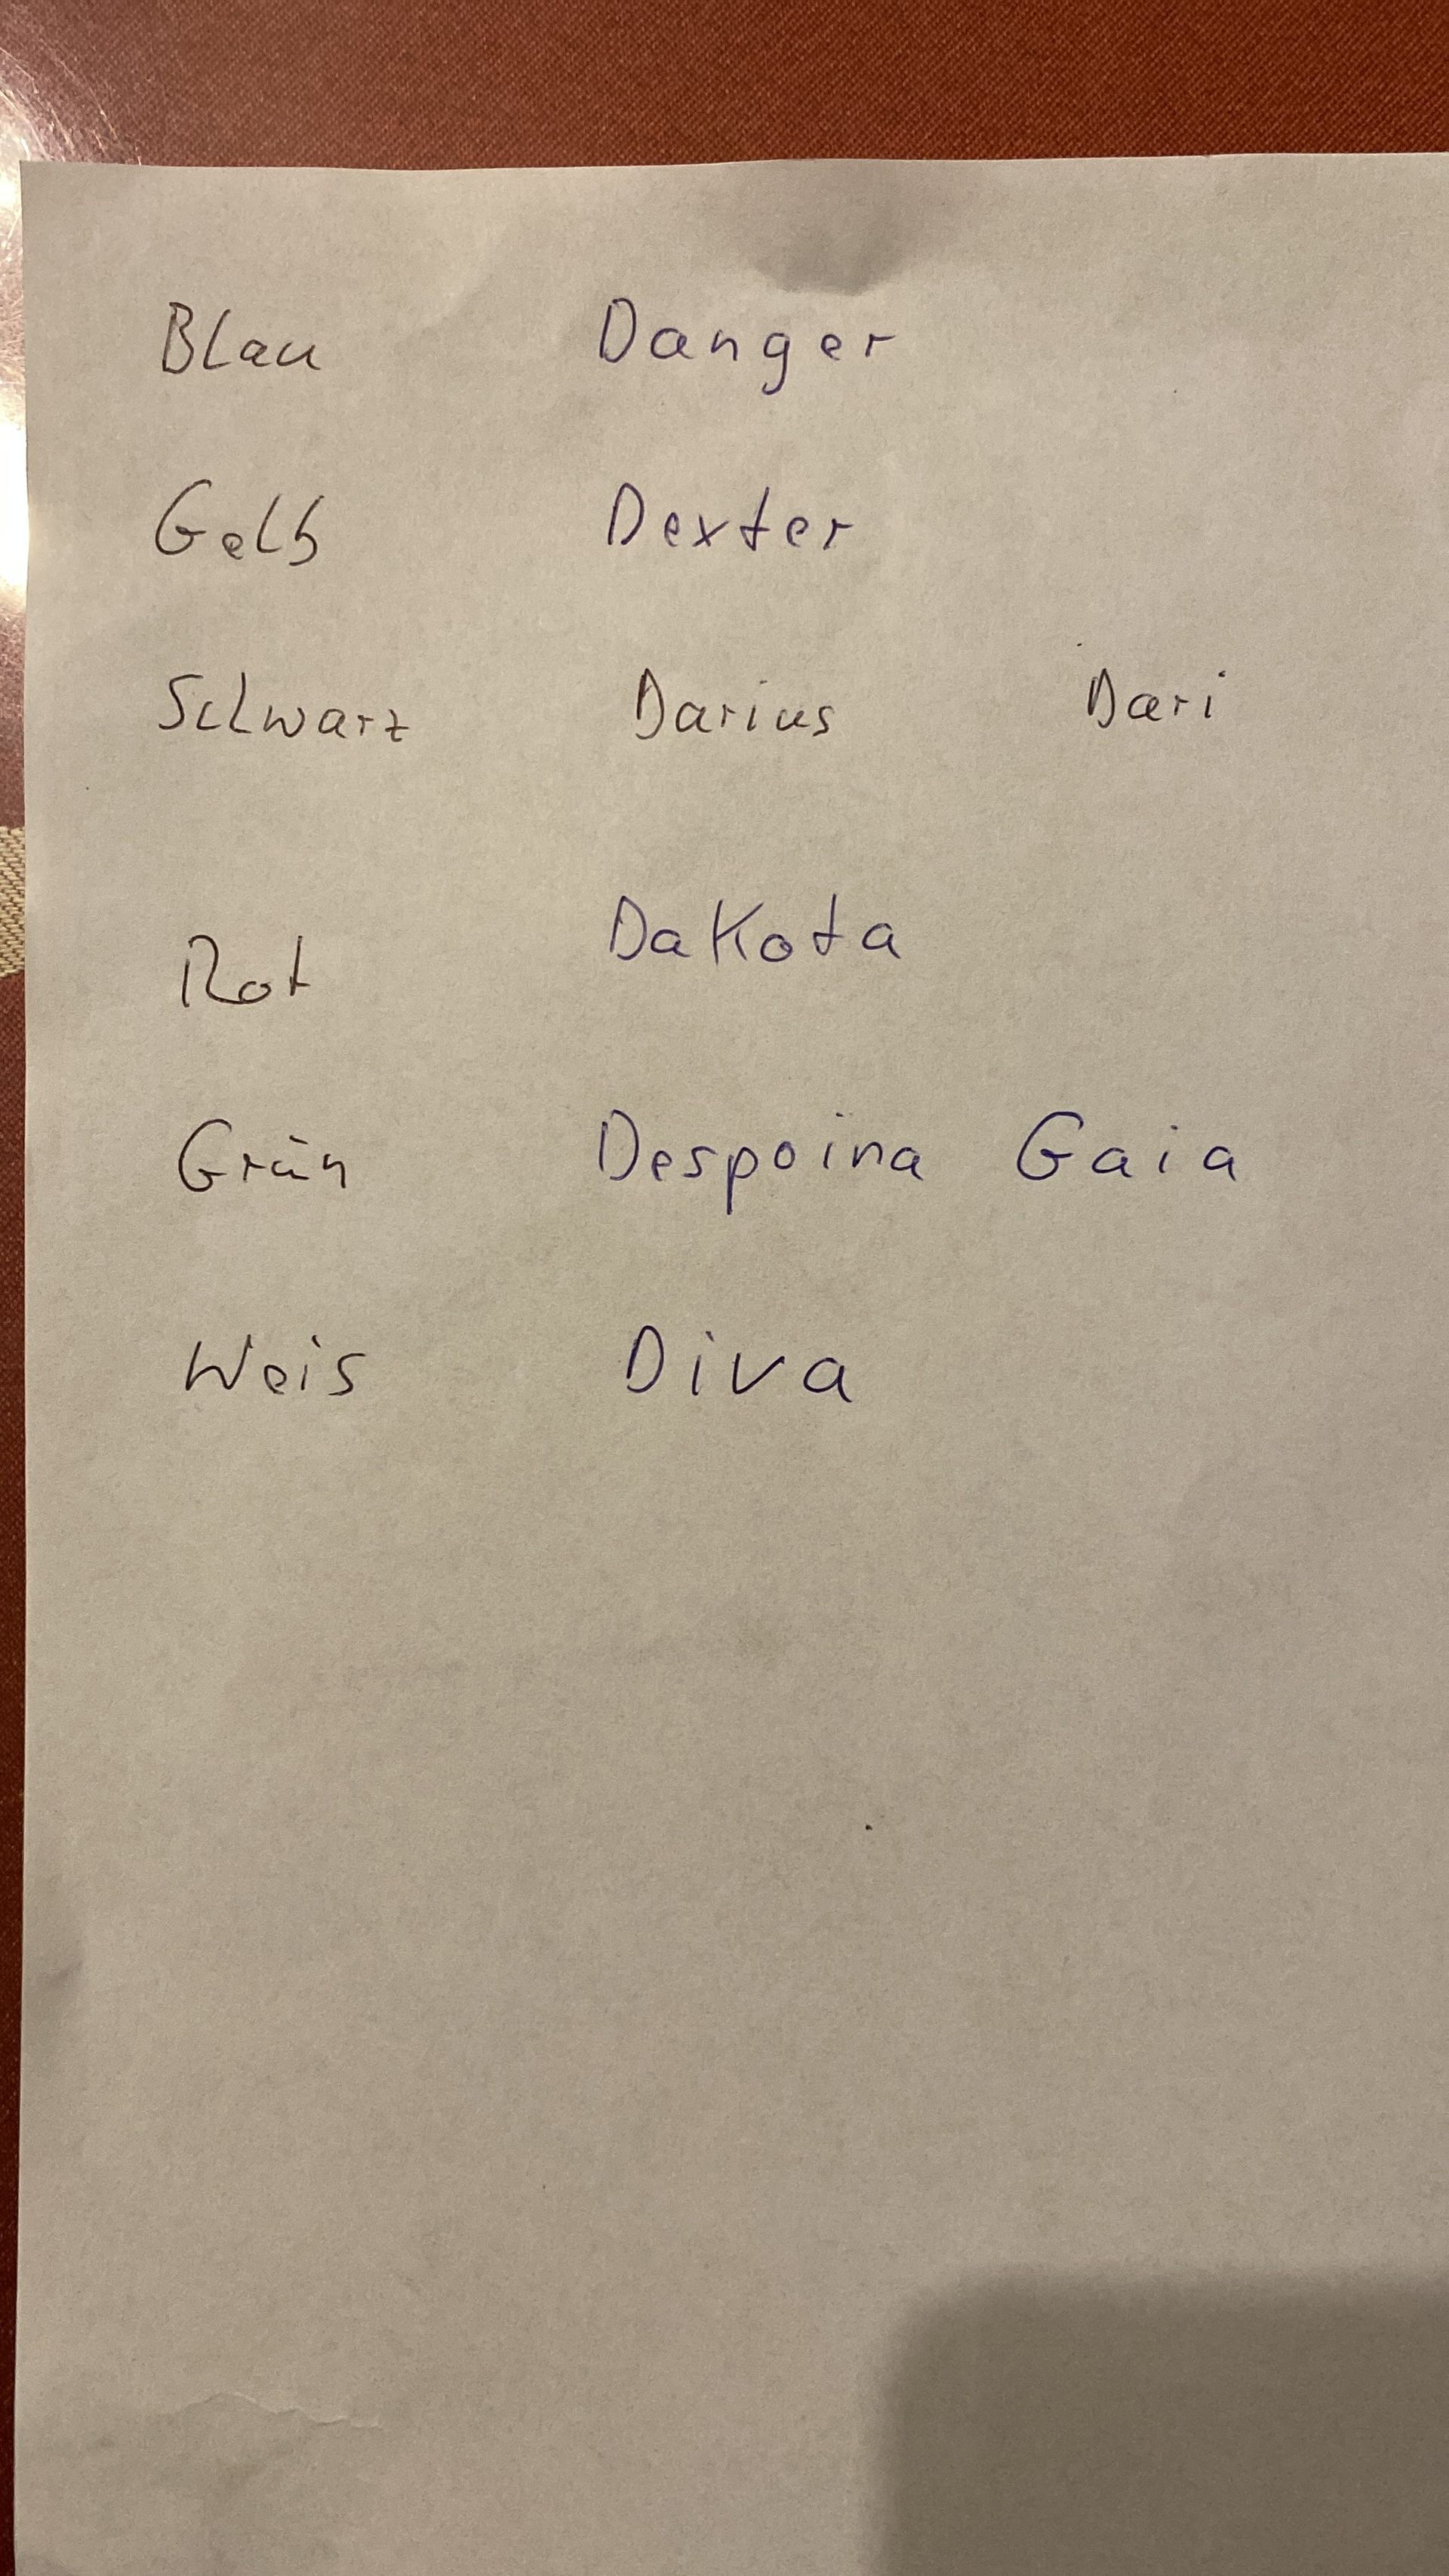 Blau Danger
Gelb Dexter
Schwarz Darius Dari
Rot Dakota
Grün Despoina Gaia
Weis Diva